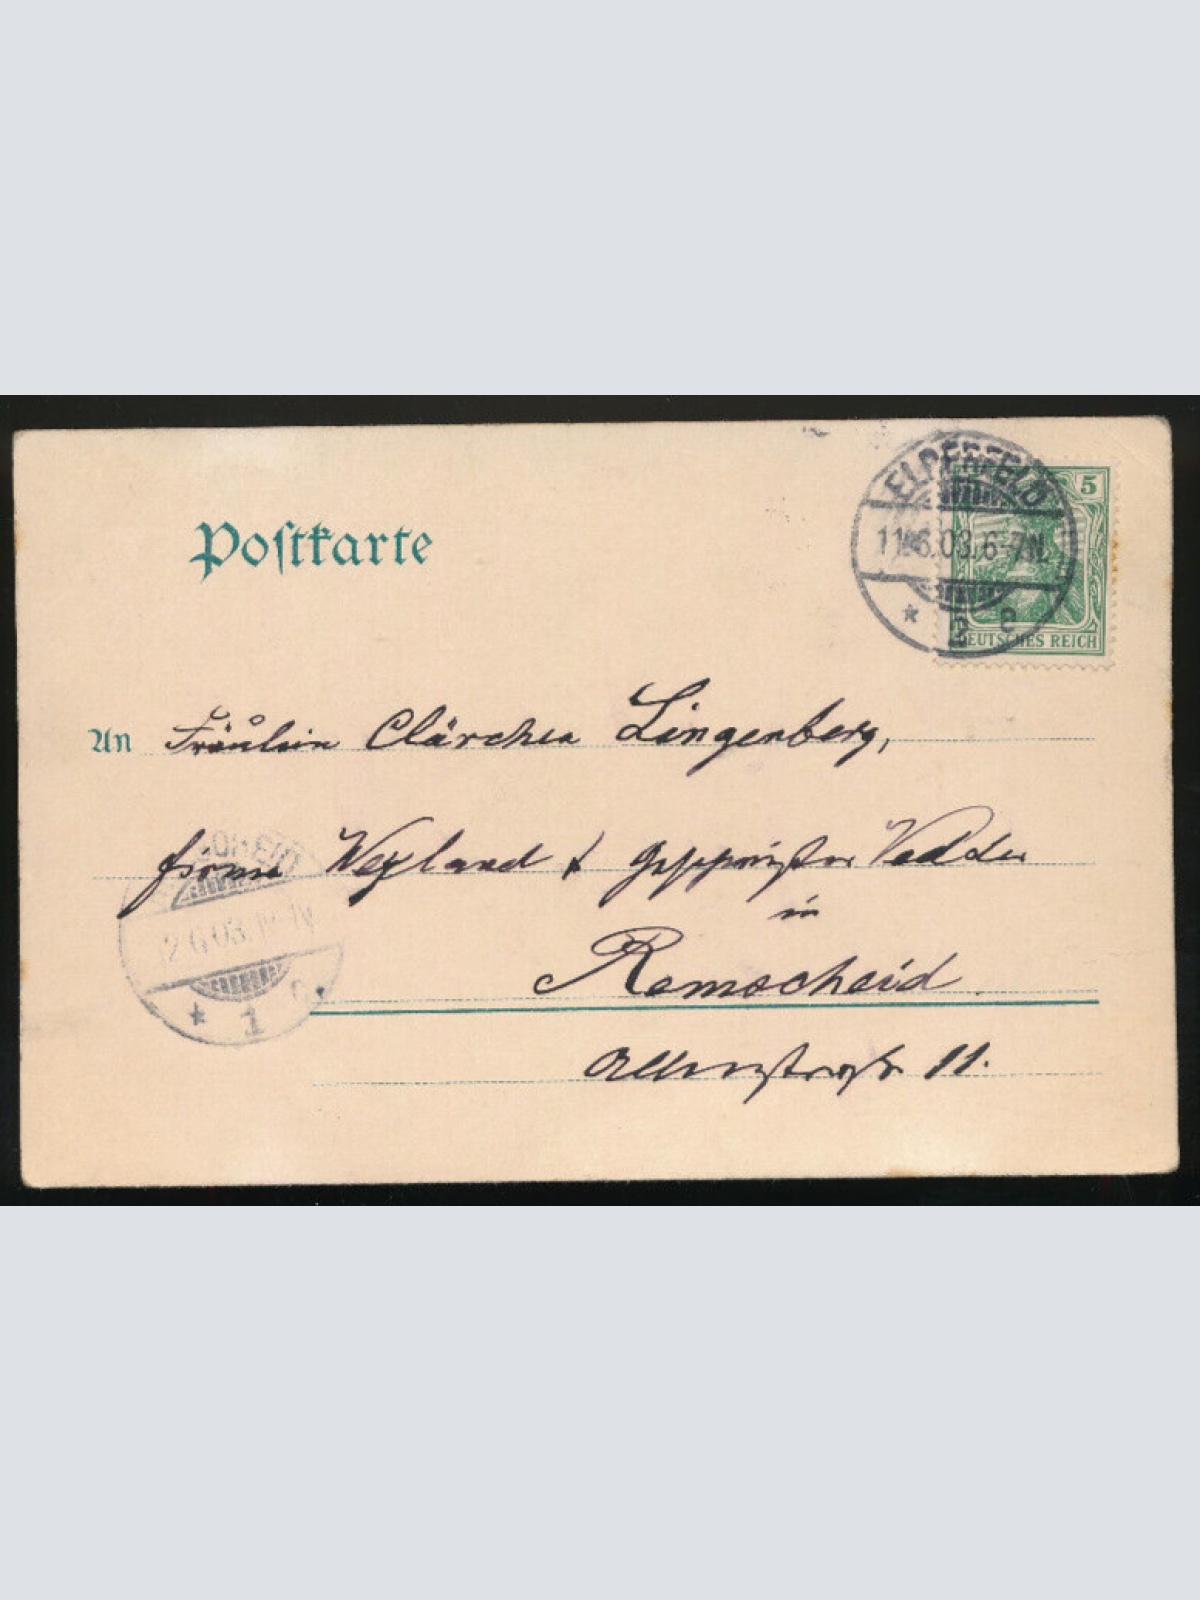 ELBERFELD
11.6.03.6-7N.
* 2 e
5
DEUTSCHES REICH
Postkarte
An Fräulein Clärchen Lingenberg,
Firma Weyland & Geschwister Vedder
in
Remscheid.
12.6.03.
* 1
11.